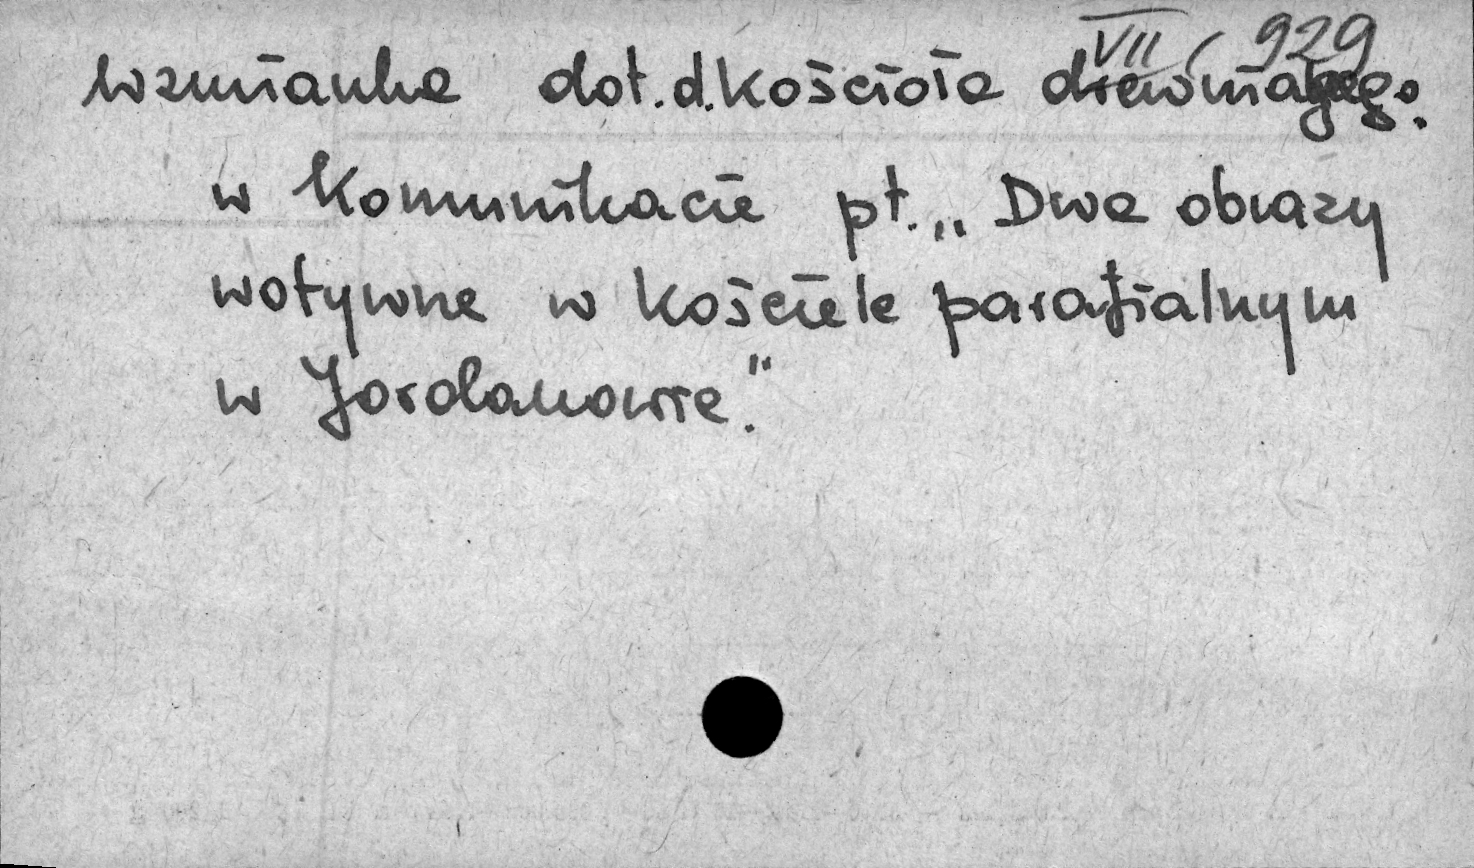 VII / 929
wzmianka dot. d. kościoła drewnianego.
w Komunikacie pt. „Dwa obrazy
wotywne w kościele parafialnym
w Jordanowie."